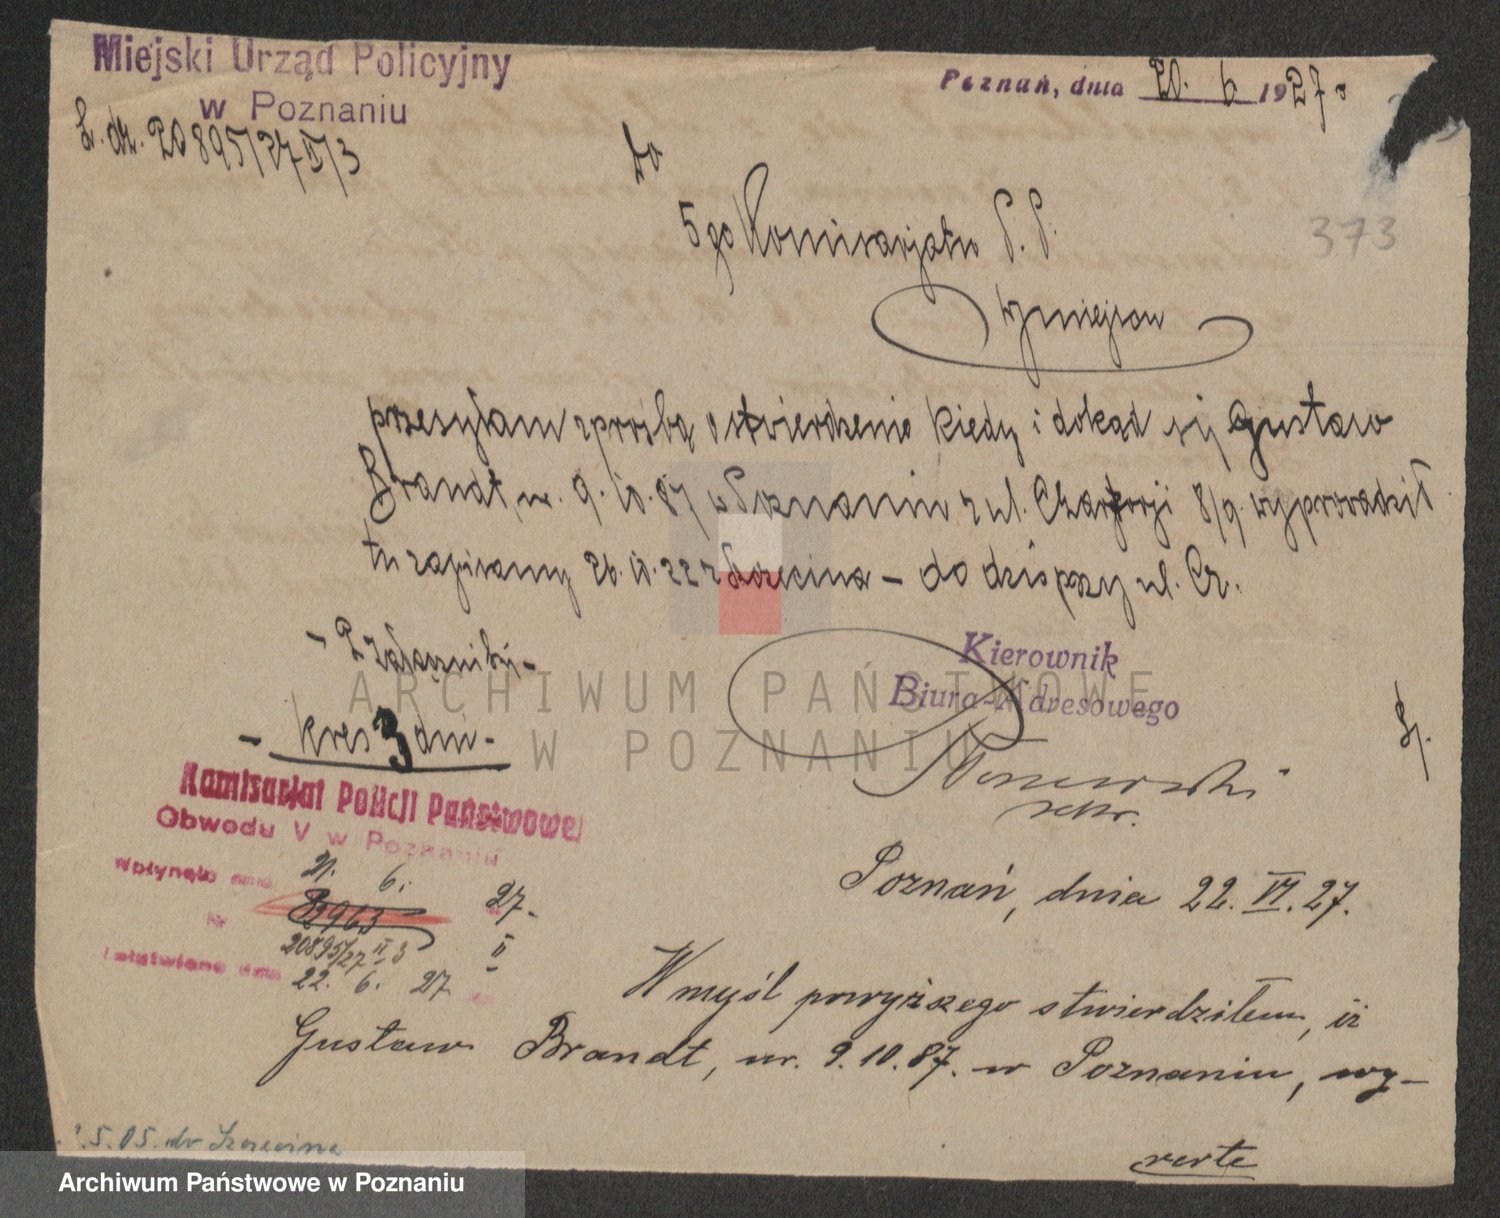 Miejski Urząd Policyjny
w Poznaniu
Poznań, dnia 20. 6 1927.
L. dz. 20895/27 II/3
Do
5go Komisarjatu P. P.
w miejscu
373
przesyłam z prośbą o stwierdzenie kiedy i dokąd się Gustaw
Brandt, ur. 9.10.87 w Poznaniu z ul. 8/9. wyprowadził
tu zapisany 26. 22 z Szczecina – do dziś przy ul. Cz.
- 2 załączniki -
- kres 3 dni -
Kierownik
Biura Adresowego
sekr.
Komisarjat Policji Państwowej
Obwodu V w Poznaniu
Wpłynęło dnia 21. 6. 27.
Nr 82963
20895/27 II 3 II
Załatwiono dnia 22. 6. 27
Poznań, dnia 22. VI. 27.
W myśl powyższego stwierdziłem, iż
Gustaw Brandt, ur. 9.10.87. w Poznaniu, wy-
verte
5.05. do Szczecina
ARCHIWUM PAŃSTWOWE
W POZNANIU
Archiwum Państwowe w Poznaniu